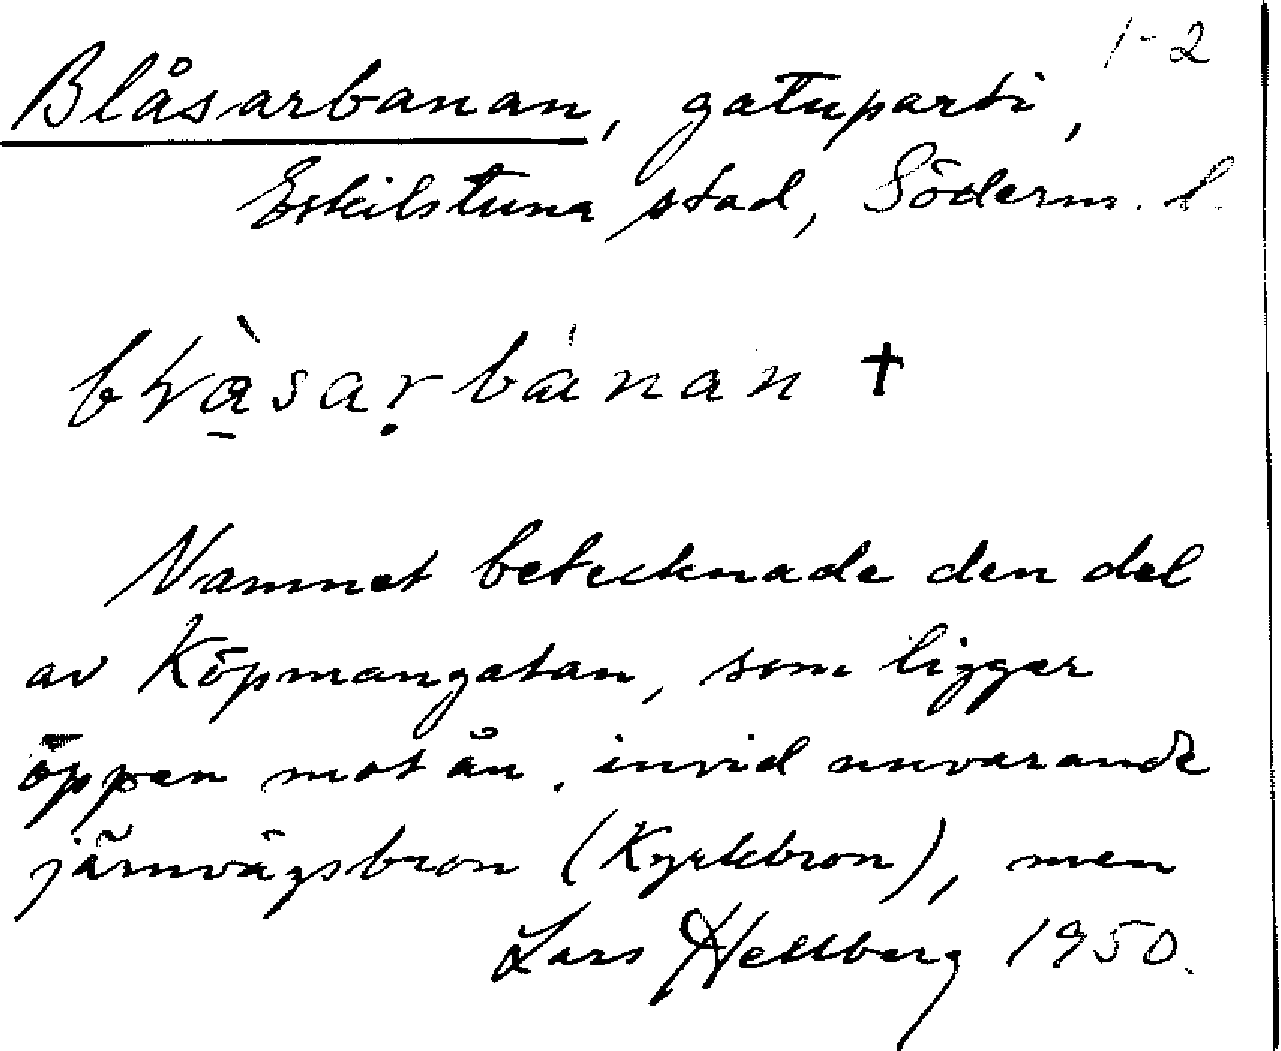 1-2
Blåsarbanan, gatuparti,
Eskilstuna stad, Söderm. l.
Namnet betecknade den del
av Köpmangatan, som ligger
öppen mot ån, invid nuvarande
järnvägsbron (Kyrkbron), men
Lars Hellberg 1950.